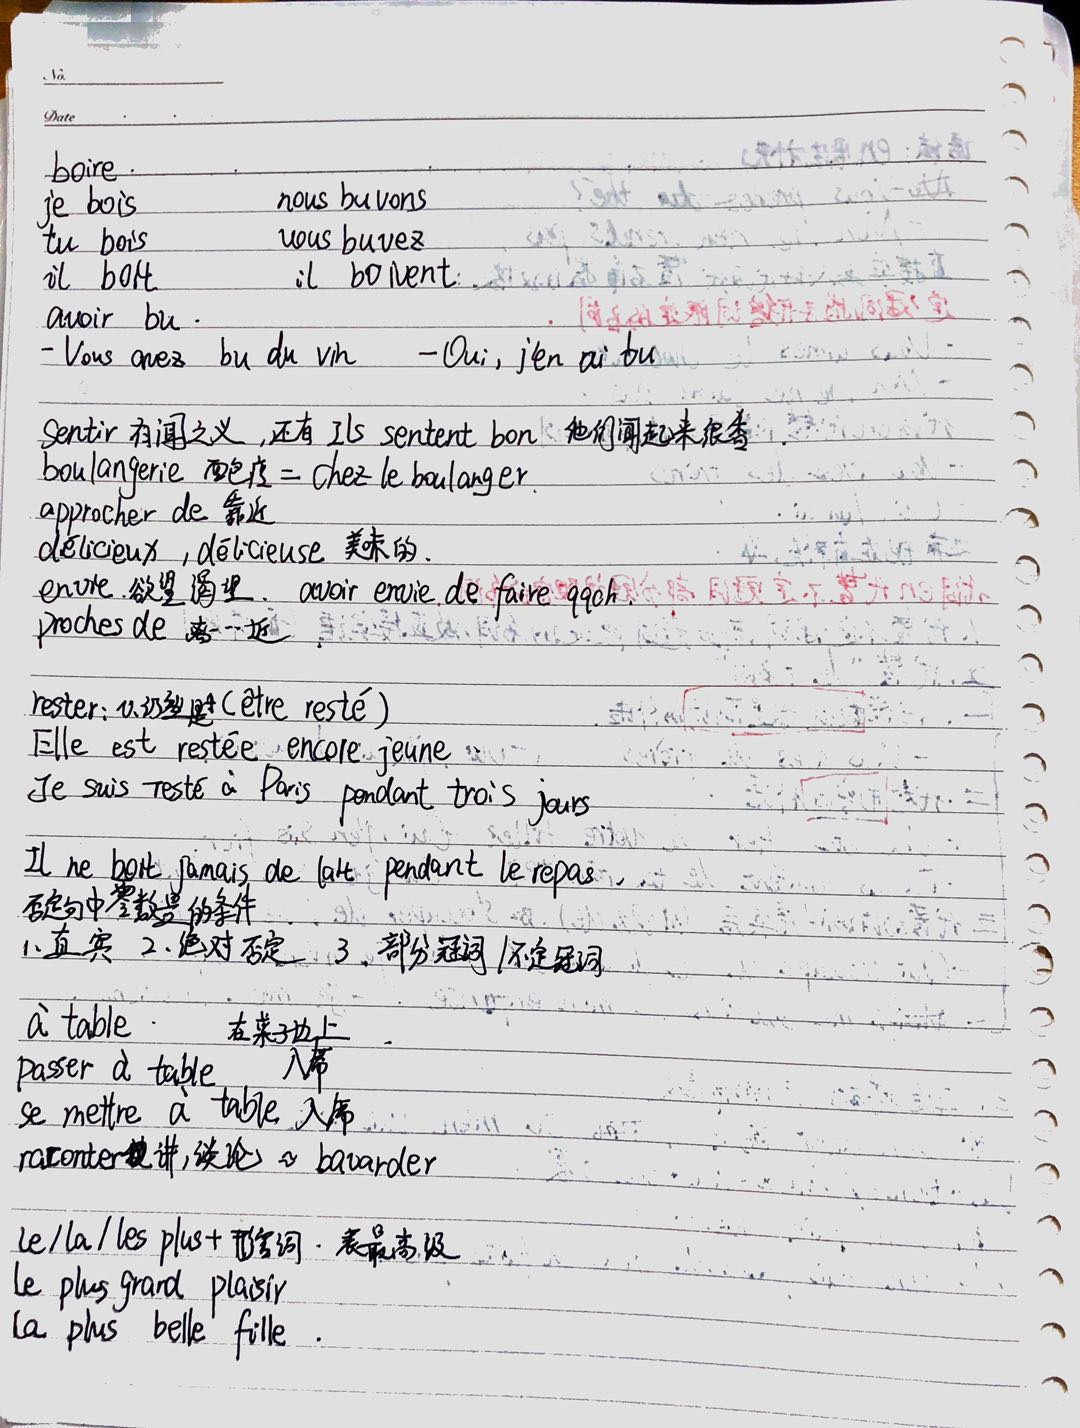 No.
Date
boire.
je bois nous buvons
tu bois vous buvez
il boit il boivent.
avoir bu.
- Vous avez bu du vin - Oui, j'en ai bu
sentir 有闻之义,还有 Ils sentent bon 他们闻起来很香.
boulangerie 面包店 = chez le boulanger.
approcher de 靠近
délicieux, délicieuse 美味的.
envie 欲望 渴望. avoir envie de faire qqch.
proches de 离……近
rester: v.仍然是 (être resté)
Elle est restée encore jeune.
Je suis resté à Paris pendant trois jours
Il ne boit jamais de lait pendant le repas.
否定句中零数量的条件
1、直宾 2、绝对否定 3、部分冠词/不定冠词
à table. 在桌子边上.
passer à table 入席
se mettre à table 入席
raconter 讲,谈论 ≈ bavarder
le/la/les plus + 形容词. 表最高级
le plus grand plaisir
la plus belle fille.